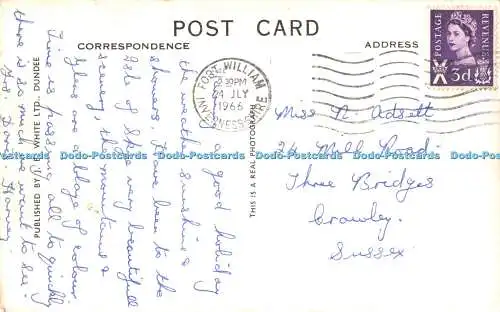 POST CARD
CORRESPONDENCE
ADDRESS
Having a good holiday
the weather sunshine &
showers. Have been to the
Isle of Skye very beautiful
scenery, the mountains &
glens are a blaze of colour.
Time is passing all to quickly
there is so much we want to see.
PUBLISHED BY J. B. WHITE LTD., DUNDEE
THIS IS A REAL PHOTOGRAPH
Miss N. Adsett
24 Mill Road
Three Bridges
Crawley.
Sussex.
FORT WILLIAM
30PM
JLY
1966
INVERNESS-SHIRE
POSTAGE
REVENUE
3d
Dodo-Postcards Dodo-Postcards Dodo-Postcards Dodo-Postcards Dodo-Postcards
Dodo-Postcards Dodo-Postcards Dodo-Postcards Dodo-Postcards Dodo-Postcards